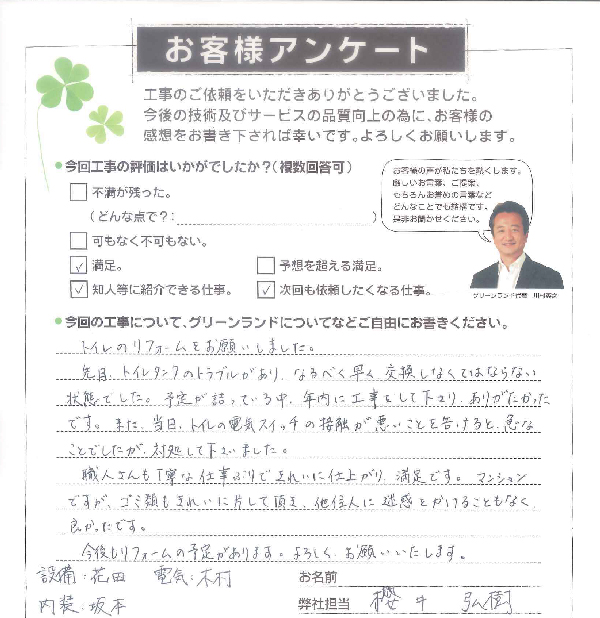 お客様アンケート
工事のご依頼をいただきありがとうございました。
今後の技術及びサービスの品質向上の為に、お客様の
感想をお書き下されば幸いです。よろしくお願いします。
今回工事の評価はいかがでしたか?(複数回答可)
不満が残った。
(どんな点で?: )
可もなく不可もない。
✓ 満足。
予想を超える満足。
✓ 知人等に紹介できる仕事。
✓ 次回も依頼したくなる仕事。
お客様の声が私たちを動くします。
厳しいお言葉、ご提案、
もちろんお褒めの言葉など
どんなことでも結構です、
是非お聞かせください。
グリーンランド代表
今回の工事について、グリーンランドについてなどご自由にお書きください。
トイレのリフォームをお願いしました。
先日、トイレタンクのトラブルがあり、なるべく早く交換しなくてはならない
状態でした。予定が詰っている中、年内に工事をして下さり、ありがたかった
です。また、当日、トイレの電気スイッチの接触が悪いことを告げると、急な
ことでしたが、対処して下さいました。
職人さんも丁寧な仕事ぶりできれいに仕上がり、満足です。マンション
ですが、ゴミ類もきれいに片して頂き、他住人に迷惑をかけることもなく、
良かったです。
今後もリフォームの予定があります。よろしくお願いいたします。
設備:花田 電気:木村
内装:坂本
お名前
弊社担当 櫻井 弘樹